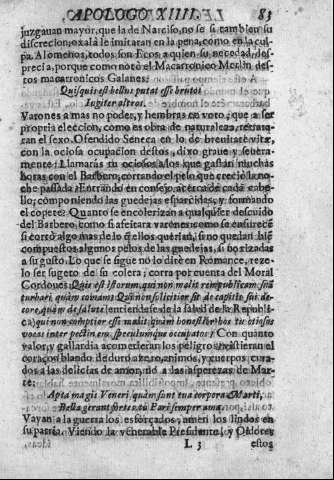 APOLOGO XIIII. 83
juzgauan mayor, que la de Narciso, no se si tambien su
discrecion, oxalà le imitaran en la pena, como en la cul-
pa. Alomenos, todos son Ecos a quien su necedad, des-
precia, porque como notò el Macarronico Merlin des-
tos macarronicos Galanes:
Quisquis est bellus putat esse
Iugiter astrot.
Varones a mas no poder, y hembras en voto, que a ser
propria eleccion, como es obra de naturaleza,
ran el sexo. Ofendido Seneca en lo de breuitate vitæ,
con la ociosa ocupacion destos, dixo graue y seuera-
mente: Llamaràs tu ociosos a los que gastan muchas
horas con el Barbero, cortando el pelo que creciò la no-
che passada? Entrando en consejo acerca de cada cabe-
llo, componiendo las guedejas esparcidas, y formando
el copete? Quanto se encolerizan a qualquier descuido
del Barbero, como si afeitara varones
si cortò algo mas de lo que ellos querian, si no quedan bie
compuestos algunos pelos de las guedejas, si no rizadas
a su gusto. Lo que se sigue no lo dirè en Romance, reze-
lo ser sugeto de su colera; corra por cuenta del Moral
Cordoues: Quis est istorum, qui non malit rempublicam suã
turbari, quàm comam? Qui non solicitior sit de capitis sui de-
core, quàm de salute (entiendese de la salud de la Republi-
ca) qui non comptior esse malit quàm honestior? hos tu otiosos
vocas inter pectinem, speculumque occupatos? Con quanto
valor, y gallardia acometieran los peligros,
coraçõ blando de duro azero, animos, y cuerpos cura-
dos a las delicias de amor, no a las asperezas de Mar-
te:
Apta magis Veneri, quàm sunt tua corpora Marti,
Bella gerant fortes, tu Pari semper ama.
Vayan a la guerra los esforçados, amen los lindos en
su patria. Viendo la venerable Presidente, y Oidores
L 3 estos